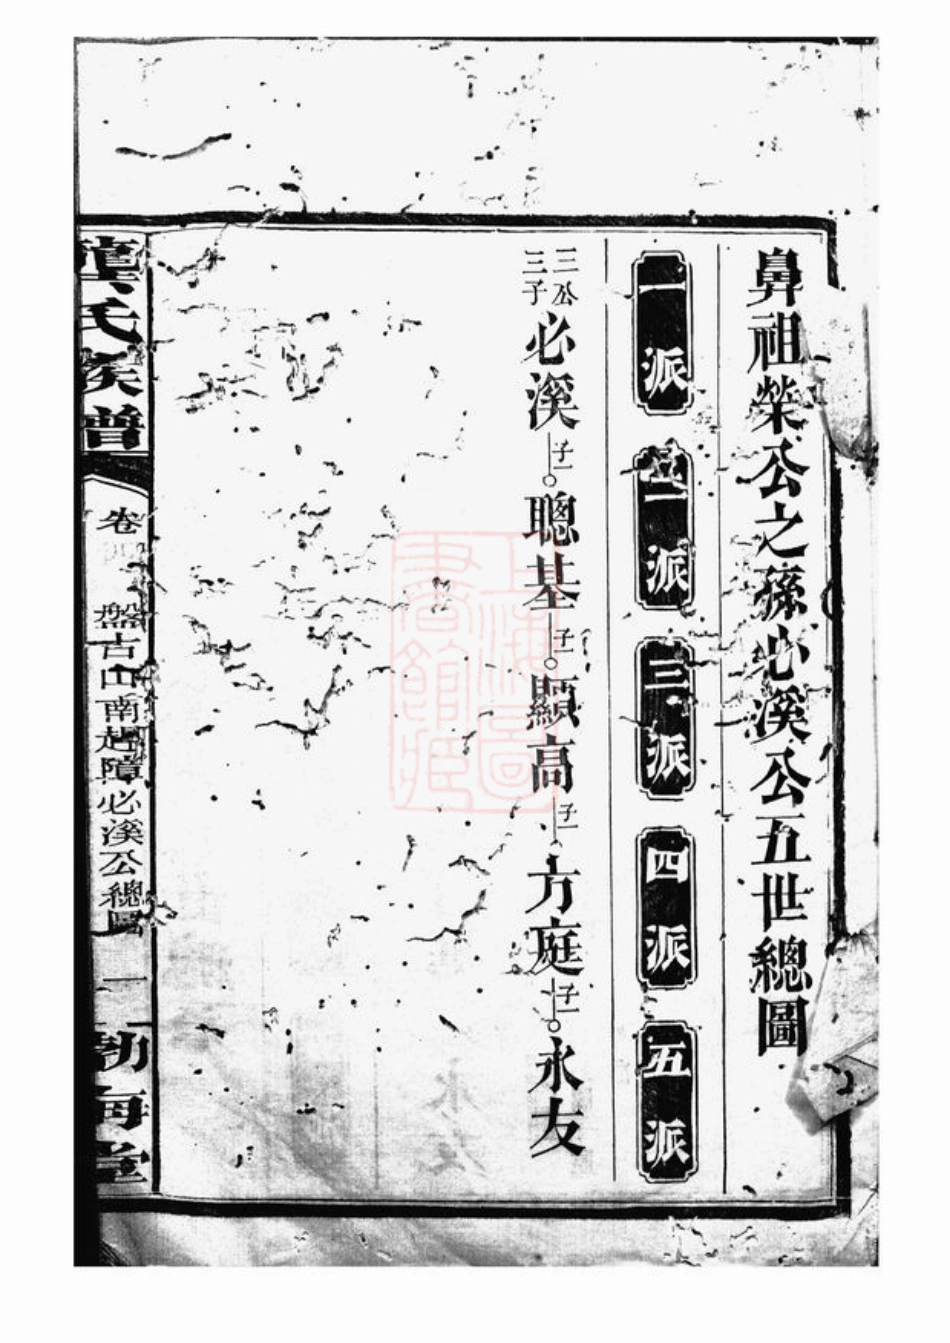 鼻祖榮公之孫必溪公五世總圖
一派
二派
三派
四派
五派
三公
三子
必溪
子一
聰基
子一
顯高
子一
方庭
子一
永友
龔氏族譜
卷
盤古山南赴障必溪公總圖
一
勃海堂
上海圖書館藏